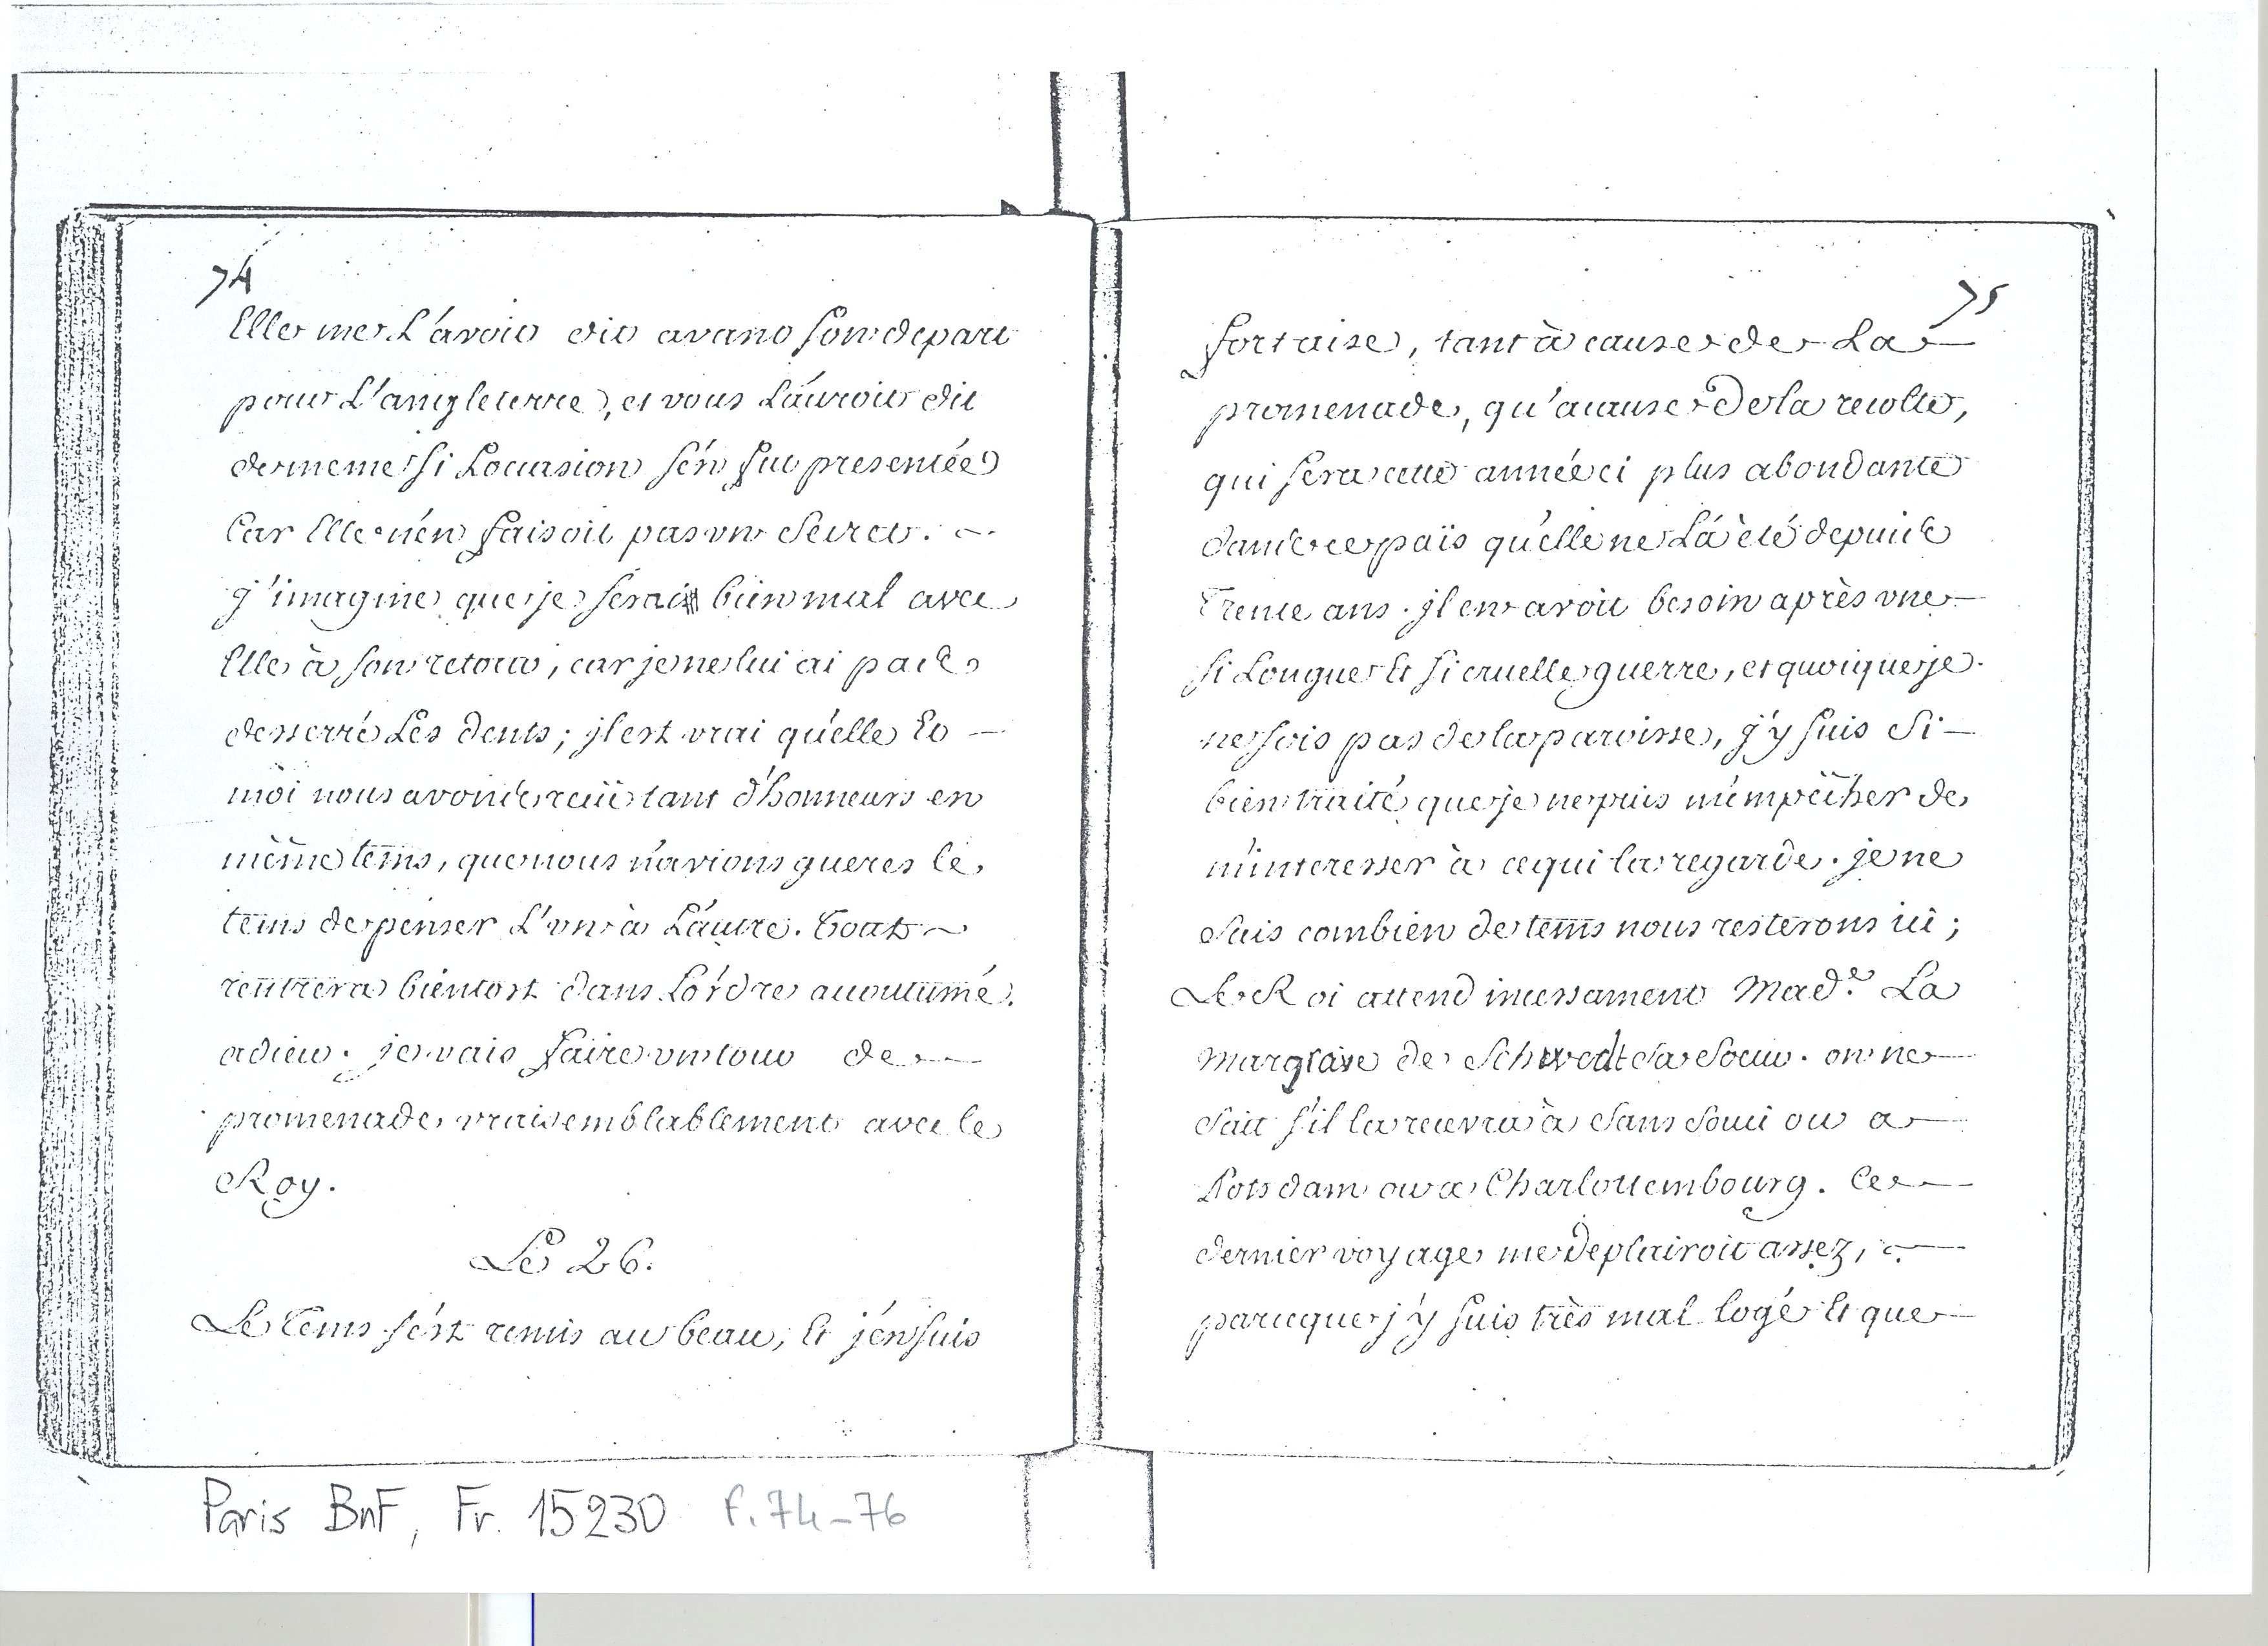 74
Elle me L'avoit dit avant son depart
pour L'angleterre, et vous L'auroit dit
de meme si Locasion s'en fut presentée
Car Elle n'en faisoit pas un Secret.
j'imagine que je serai bien mal avec
Elle à son retour, car je ne lui ai pas
desserré Les dents; jl est vrai qu'elle Et
moi nous avons recû tant d'honneurs en
même tems, que nous n'avions gueres le
tems de penser L'un à L'autre. Tout
rentrera bientost dans L'ordre acoutumé.
adieu. je vais faire un tour de
promenade vraisemblablement avec le
Roy.
Le 26.
Le tems s'est remis au beau, Et j'en suis
75
fort aise, tant à cause de La
promenade, qu'a cause De la recolte,
qui sera cette année ci plus abondante
dans ce païs qu'elle ne L'a été depuis
Trente ans. jl en avoit besoin après une
si Longue Et si cruelle guerre, et quoique je
ne sois pas de la paroisse, j'y suis si
bien traité que je ne puis m'empêcher de
m'interesser à ce qui la regarde. je ne
sais combien de tems nous resterons ici;
Le Roi attend incessament Mad.e La
Margrave de Schwedt sa Soeur. on ne
sait s'il la recevra à Sans Souci ou a
Potsdam ou a Charlottembourg. Ce
dernier voyage me deplairoit assez,
parceque j'y suis très mal logé Et que
Paris BnF, Fr. 15230 f. 74-76